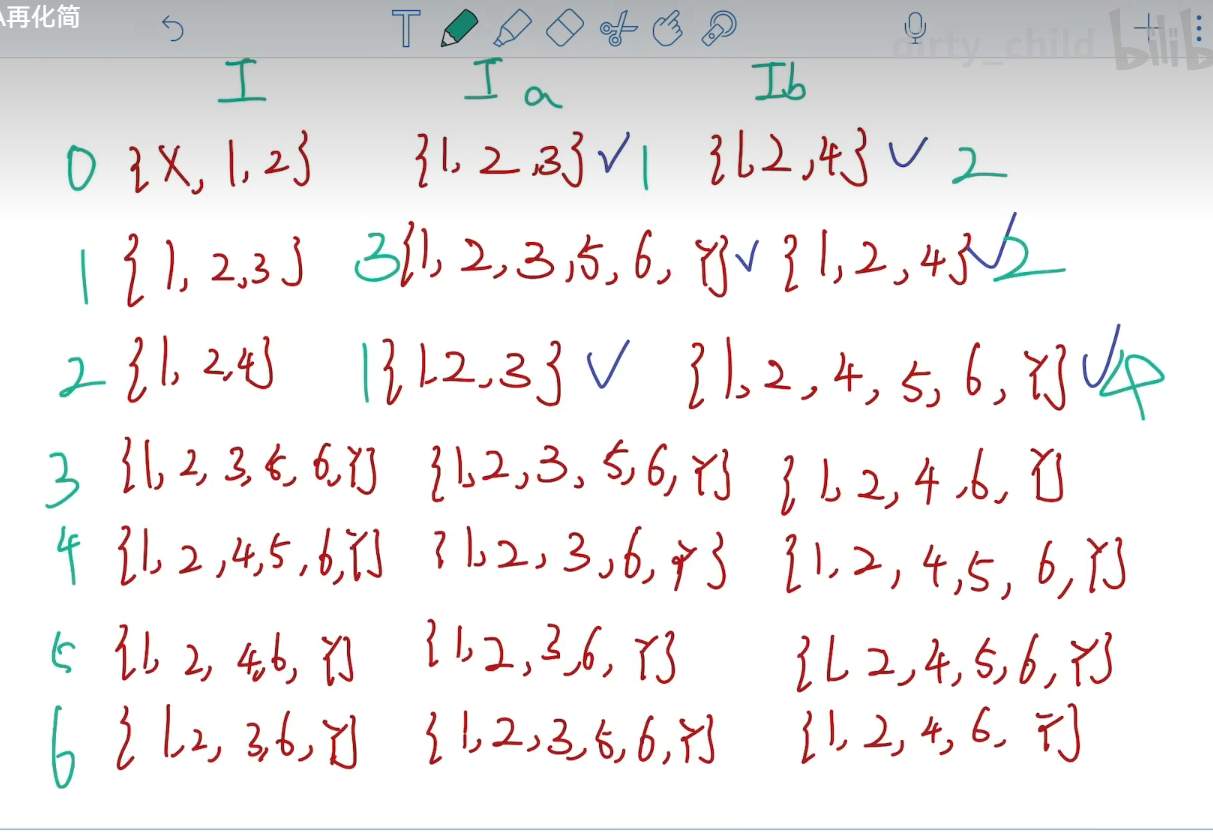 A再化简
dirty_child bilib
I Ia Ib
0 {X, 1, 2} {1, 2, 3} ✓ 1 {1, 2, 4} ✓ 2
1 {1, 2, 3} 3 {1, 2, 3, 5, 6, Y} ✓ {1, 2, 4} ✓ 2
2 {1, 2, 4} 1 {1, 2, 3} ✓ {1, 2, 4, 5, 6, Y} ✓ 4
3 {1, 2, 3, 5, 6, Y} {1, 2, 3, 5, 6, Y} {1, 2, 4, 6, Y}
4 {1, 2, 4, 5, 6, Y} {1, 2, 3, 6, Y} {1, 2, 4, 5, 6, Y}
5 {1, 2, 4, 6, Y} {1, 2, 3, 6, Y} {1, 2, 4, 5, 6, Y}
6 {1, 2, 3, 6, Y} {1, 2, 3, 5, 6, Y} {1, 2, 4, 6, Y}